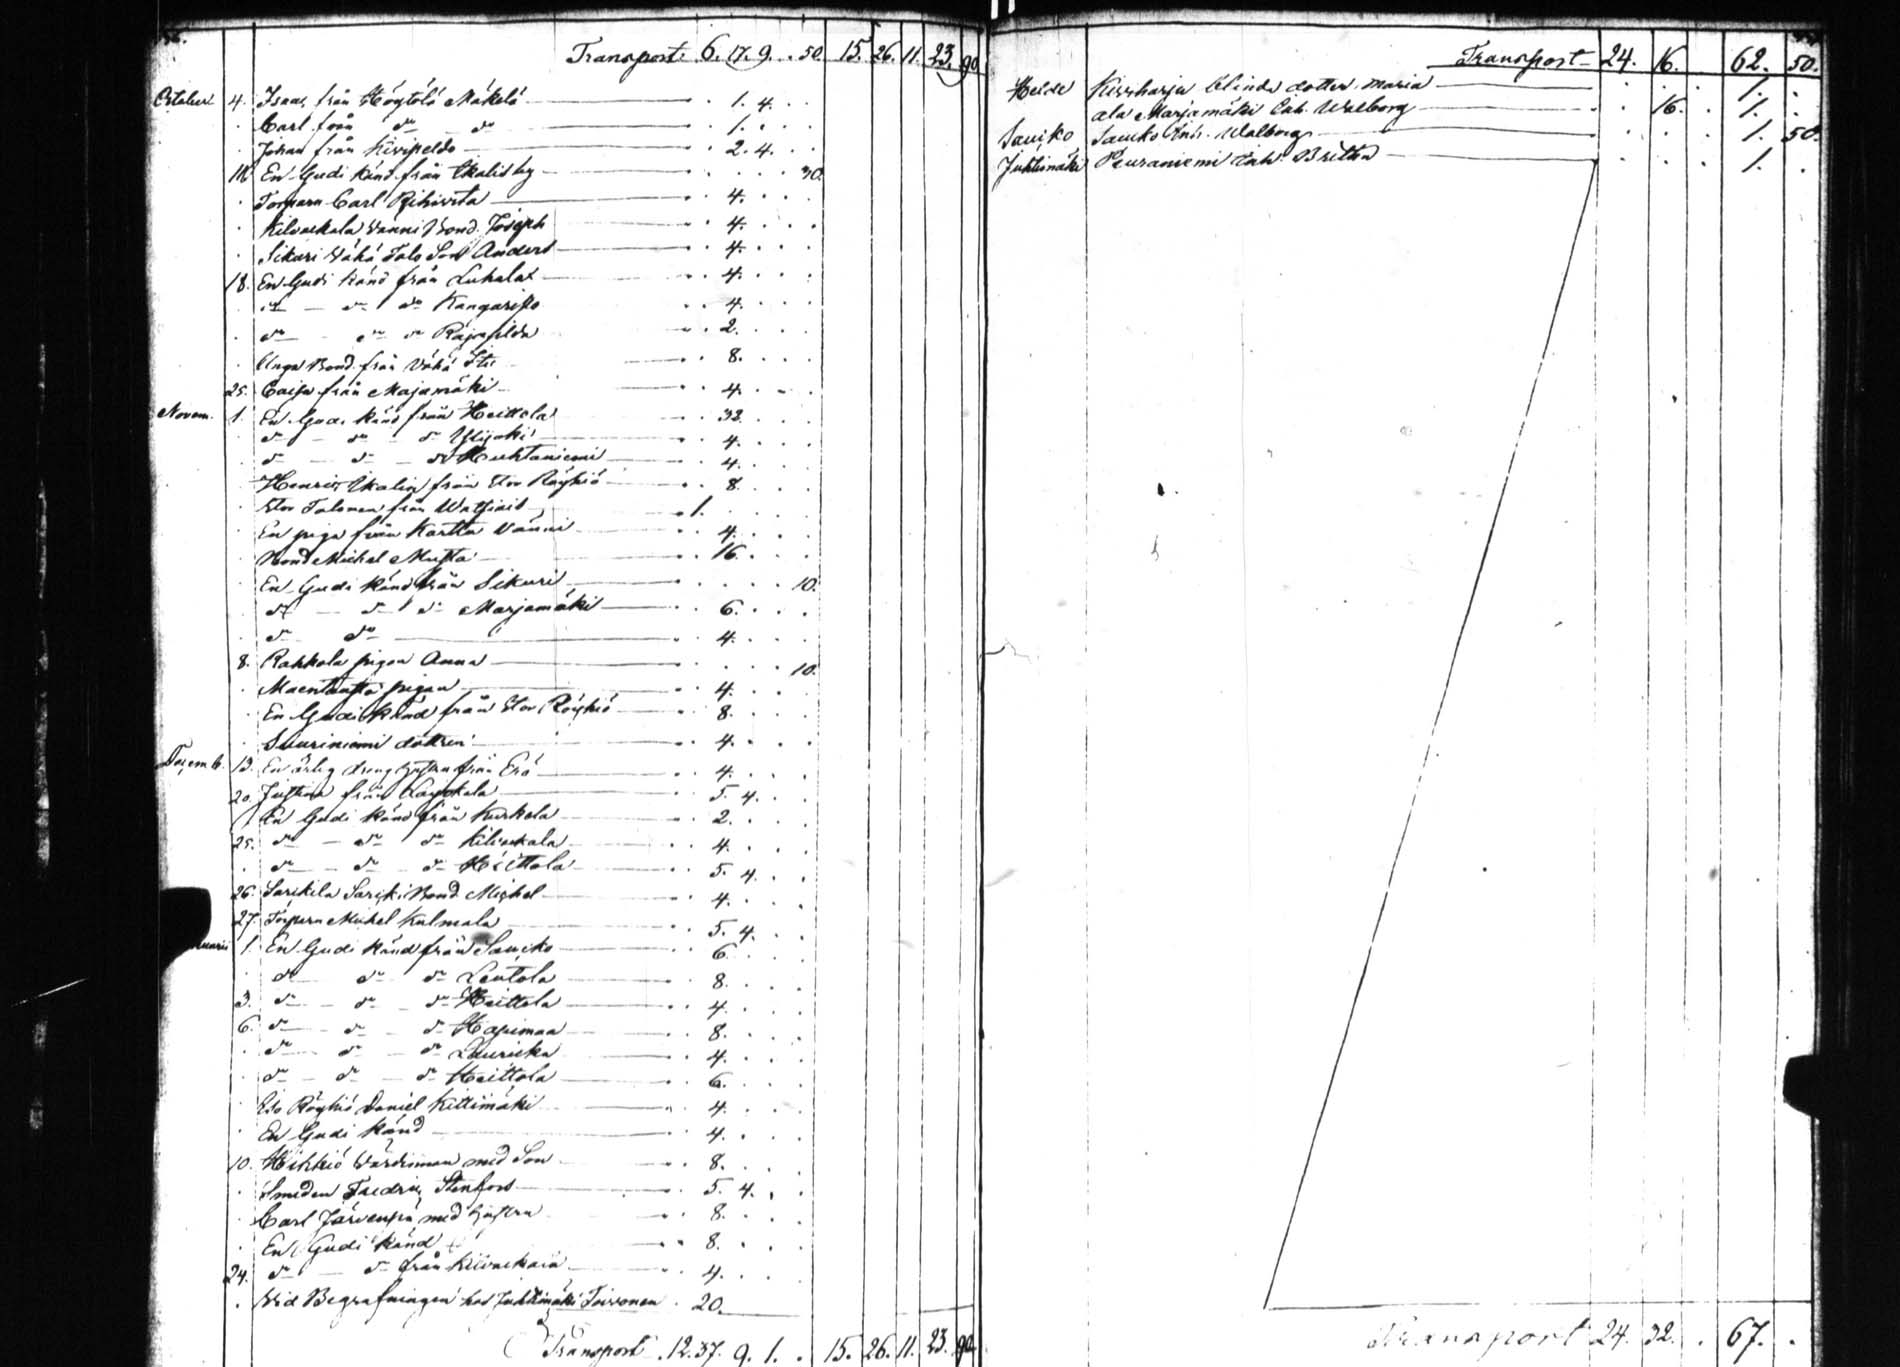 Transport 6. 17. 9. . 50 15. 26. 11. 23. 90
October 4. Isaac från Högtölö Mäkelä . 1. 4. . .
. Carl från do do . 1. . . .
. Johan från Kivipeldo . 2. 4. . .
11. En Gudi känd från Skalis by . . . . 30.
. Torparn Carl Riihivita . 4. . . .
. Kilvackala Vänni Bond. Joseph . 4. . . .
. Sikuri Vähä Talo Son Anders . 4. . . .
18. En Gudi känd från Luhala . 4. . . .
. do do do Kangaristo . 4. . . .
. do do do Räjäsilda . 2. . . .
. Unga Bond. från Vähä . 8. . . .
25. Caisa från Majamäki . 4. . . .
Novem. 1. En Gudi känd från Heittola . 32. . . .
. do do do Ylijoki . 4. . . .
. do do do Huhtaniemi . 4. . . .
. Henric Skalin från Stor Röyhiö . 8. . . .
. Stor Talonen från . 1. . . . .
. En piga från Kartta Vänni . 4. . . .
. Bond Michel Musta . 16. . . .
. En Gudi känd från Sikuri . . . . 10.
. do do do Marjamäki . 6. . . .
. do do . 4. . . .
8. Rahkola pigan Anna . . . . 10.
. pigan . 4. . . .
. En Gudi känd från Stor Röyhiö . 8. . . .
. Suuriniemi dottren . 4. . . .
Decemb. 13. En ärlig dreng hustru från Erä . 4. . . .
20. från . 5. 4. . .
. En Gudi känd från Kurkela . 2. . . .
25. do do do Kilvackala . 4. . . .
. do do do Heittola . 5. 4. . .
26. Sarkila Bond Michel . 4. . . .
27. Torparn Michel Kulmala . 5. 4. . .
nuarii 1. En Gudi känd från Saucko . 6. . . .
. do do do Leutola . 8. . . .
3. do do do Heittola . 4. . . .
6. do do do Hapiman . 8. . . .
. do do do Lauricka . 4. . . .
. do do do Heittola . 6. . . .
. Iso Röyhiö Daniel Kittimäki . 4. . . .
. En Gudi känd . 4. . . .
10. Hihkiö Värdinnan med Son . 8. . . .
. Smeden Fredric Stenfors . 5. 4. . .
. Carl Järvenpä med hustru . 8. . . .
. En Gudi känd . 8. . . .
24. do do från Kilvackala . 4. . . .
. Vid Begrafningen hos Juhtimäki Toivonen . 20.
Transport . 12. 37. 9. 1. . 15. 26. 11. 23. 90
Transport 24. 16. . 62. 50.
Heide Kiviharju blinda dotter Maria . . . 1. .
ala Marjamäki Enk. Walborg . 16. . 1. .
Saucko Saucko Enk. Walborg . . . 1. 50.
Juhtimäki Peuraniemi Enk. Britha . . . 1. .
Transport 24. 32. . 67. .